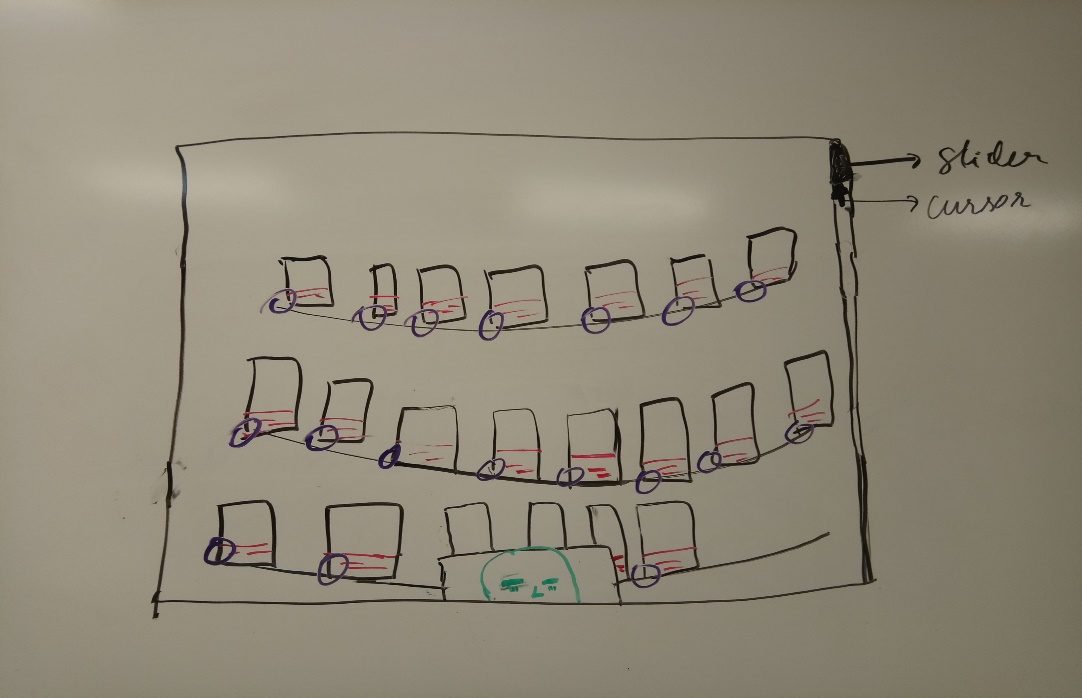 slider
cursor